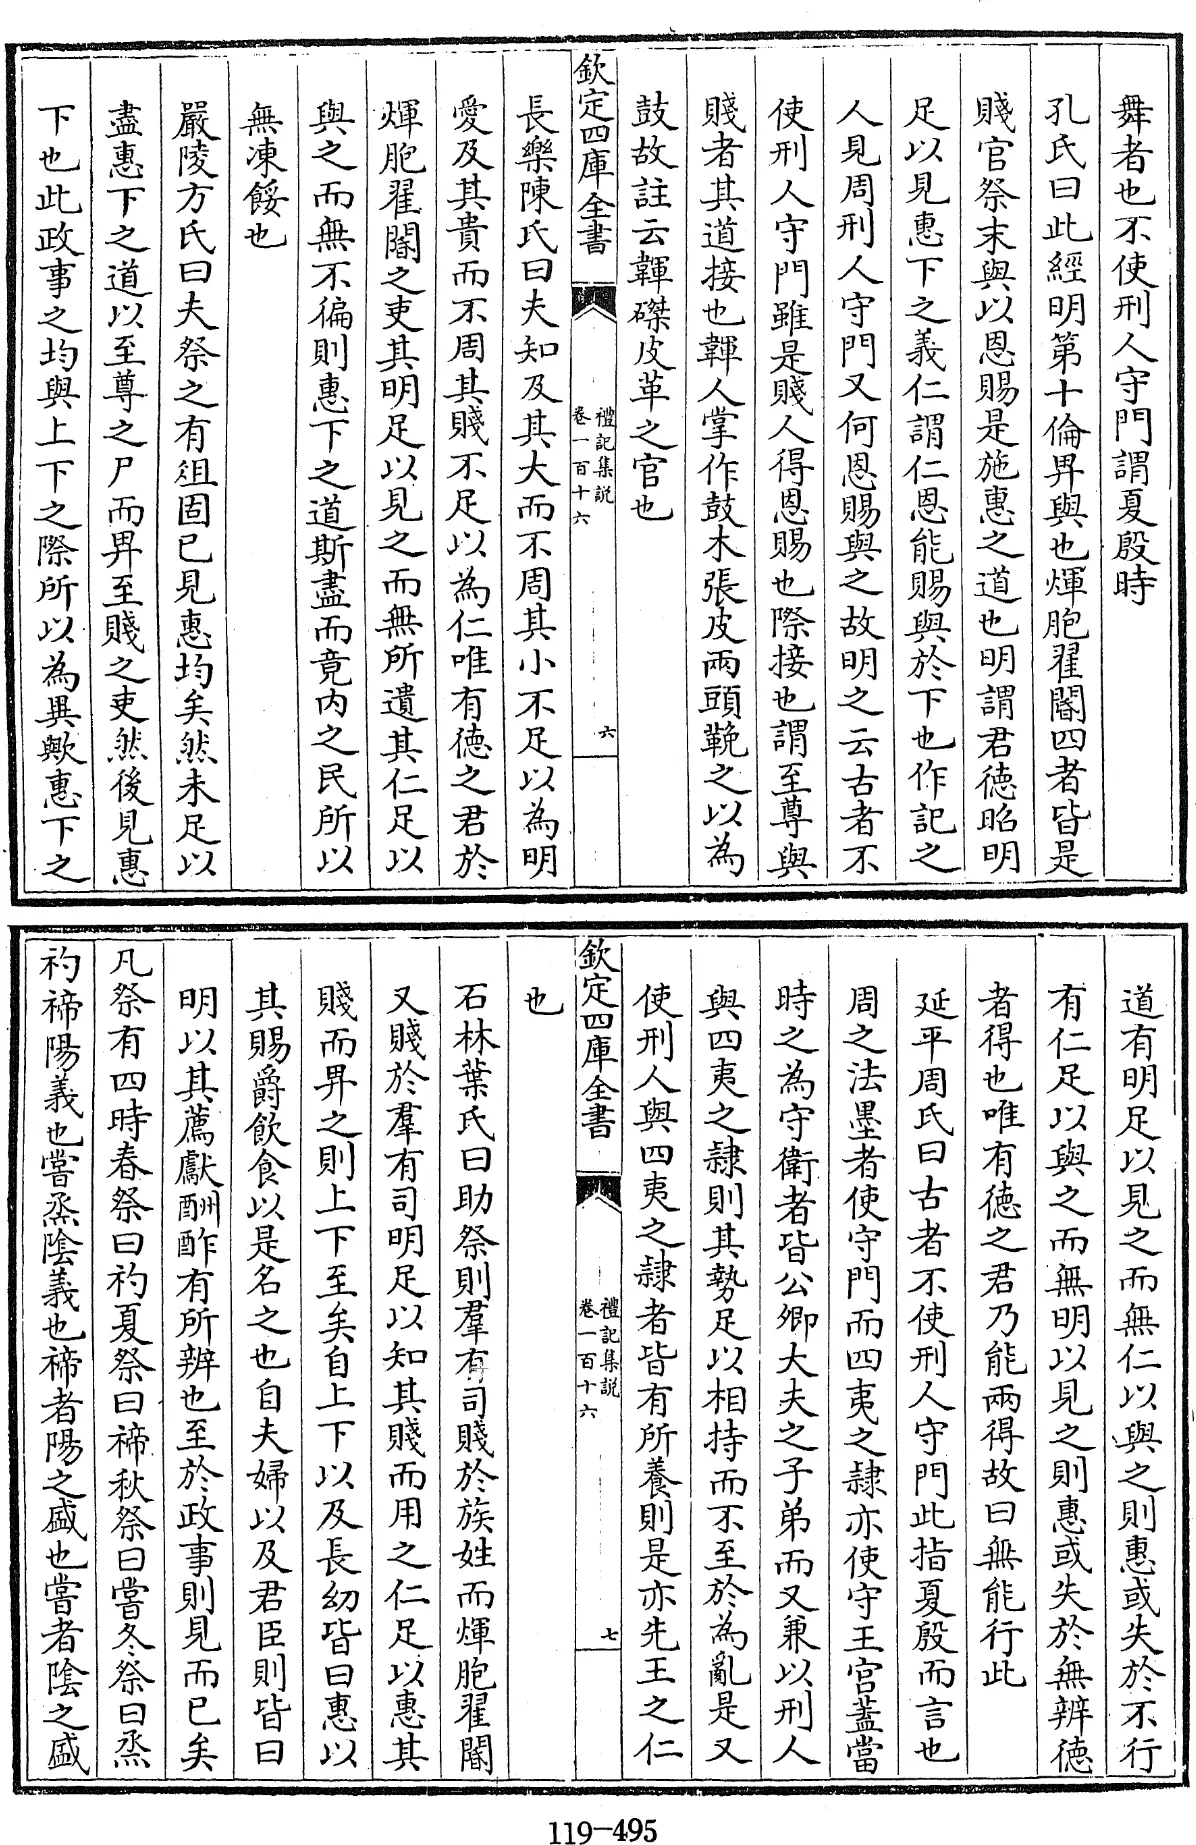 舞者也不使刑人守門謂夏殷時
孔氏曰此經明第十倫畀與也煇胞翟閽四者皆是
賤官祭末與以恩賜是施惠之道也明謂君徳昭明
足以見惠下之義仁謂仁恩能賜與於下也作記之
人見周刑人守門又何恩賜與之故明之云古者不
使刑人守門雖是賤人得恩賜也際接也謂至尊與
賤者其道接也韗人掌作鼓木張皮兩頭鞔之以為
鼓故註云韗磔皮革之官也
欽定四庫全書
禮記集説
卷一百十六
六
長樂陳氏曰夫知及其大而不周其小不足以為明
愛及其貴而不周其賤不足以為仁唯有德之君於
煇胞翟閽之吏其明足以見之而無所遺其仁足以
與之而無不徧則惠下之道斯盡而竟内之民所以
無凍餒也
嚴陵方氏曰夫祭之有俎固已見惠均矣然未足以
盡惠下之道以至尊之尸而畀至賤之吏然後見惠
下也此政事之均與上下之際所以為異歟惠下之
道有明足以見之而無仁以與之則惠或失於不行
有仁足以與之而無明以見之則惠或失於無辨徳
者得也唯有徳之君乃能兩得故曰無能行此
延平周氏曰古者不使刑人守門此指夏殷而言也
周之法墨者使守門而四夷之隷亦使守王宫蓋當
時之為守衛者皆公卿大夫之子弟而又兼以刑人
與四夷之隷則其勢足以相持而不至於為亂是又
使刑人與四夷之隷者皆有所養則是亦先王之仁
欽定四庫全書
禮記集説
卷一百十六
七
也
石林葉氏曰助祭則羣有司賤於族姓而煇胞翟閽
又賤於羣有司明足以知其賤而用之仁足以惠其
賤而畀之則上下至矣自上下以及長幼皆曰惠以
其賜爵飲食以是名之也自夫婦以及君臣則皆曰
明以其薦獻酬酢有所辨也至於政事則見而已矣
凡祭有四時春祭曰礿夏祭曰禘秋祭曰嘗冬祭曰烝
礿禘陽義也嘗烝陰義也禘者陽之盛也嘗者陰之盛
119-495